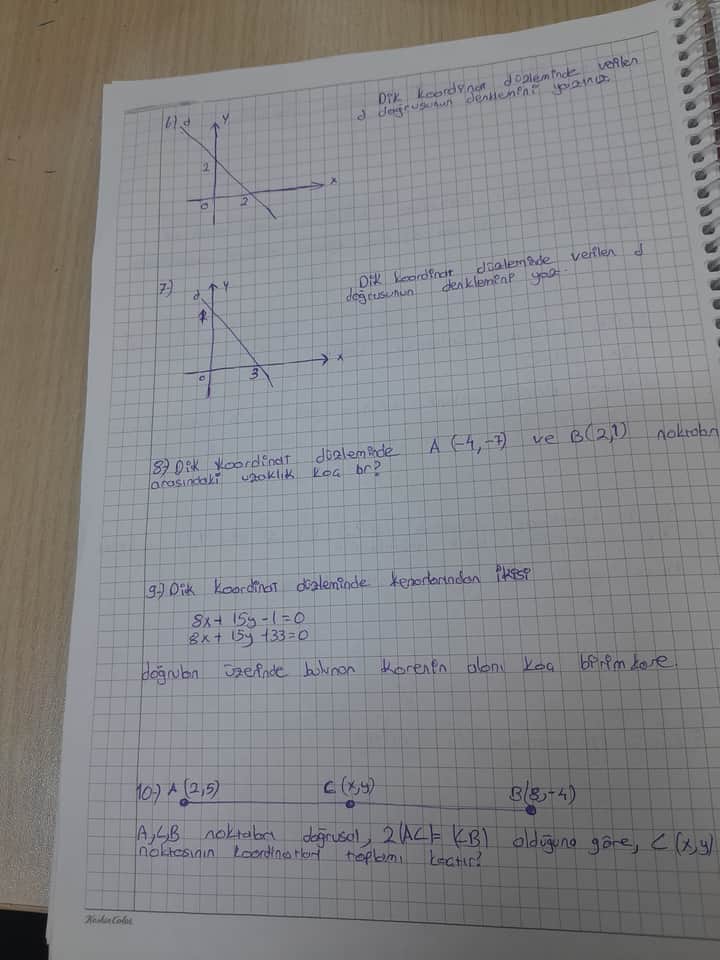 6-) d
y
2
0
2
x
Dik koordinat düzleminde verilen
d doğrusunun denklemini yazınız.
7-)
d
y
0
3
x
Dik koordinat düzleminde verilen d
doğrusunun denklemini yaz.
8-) Dik koordinat düzleminde A (-4,-7) ve B(2,1) noktaları
arasındaki uzaklık kaç br?
9-) Dik koordinat düzleminde kenarlarından ikisi
8x+ 15y -1=0
8x+ 15y +33=0
doğruları üzerinde bulunan karenin alanı kaç birim kare
10-) A (2,5) C (x,y) B(8,-4)
A,C,B noktaları doğrusal, 2|AC|= |CB| olduğuna göre, C (x,y)
noktasının koordinatları toplamı kaçtır?
KeskinColor